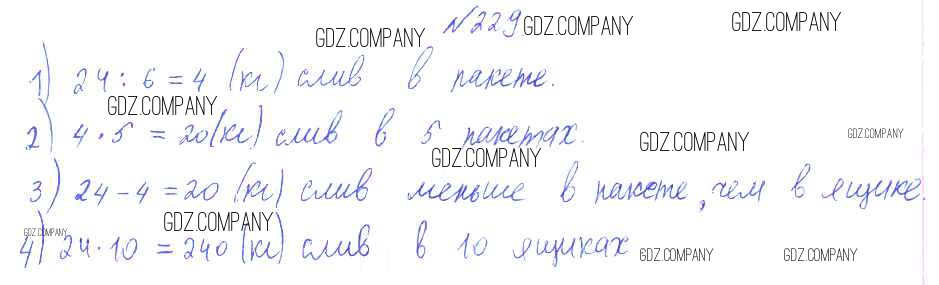 №229
1) 24 : 6 = 4 (кг) слив в пакете.
2) 4 · 5 = 20 (кг) слив в 5 пакетах.
3) 24 - 4 = 20 (кг) слив меньше в пакете, чем в ящике.
4) 24 · 10 = 240 (кг) слив в 10 ящиках
GDZ.COMPANY
GDZ.COMPANY
GDZ.COMPANY
GDZ.COMPANY
GDZ.COMPANY
GDZ.COMPANY
GDZ.COMPANY
GDZ.COMPANY
GDZ.COMPANY
GDZ.COMPANY
GDZ.COMPANY